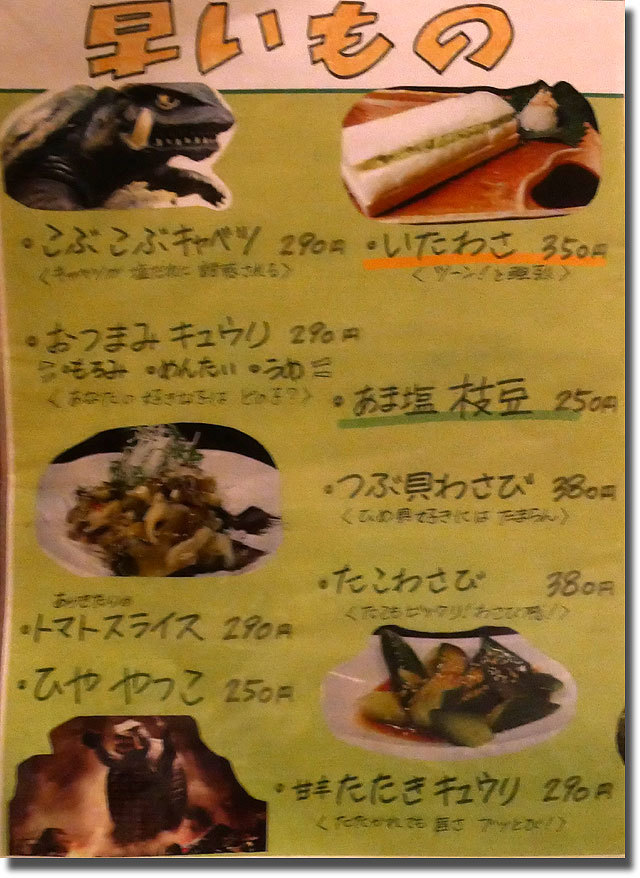 早いもの
・こぶこぶキャベツ 290円
〈キャベツが塩だれに誘惑される〉
・いたわさ 350円
〈ツーン!と
・おつまみキュウリ 290円
・もろみ ・めんたい ・うめ
〈あなたの好きな子はどの子?〉
・あま塩 枝豆 250円
・つぶ貝わさび 380円
好きには たまらん〉
・たこわさび 380円
〈たこもビックリ!わさび
ありきたりの
・トマトスライス 290円
・ひややっこ 250円
・甘辛たたきキュウリ 290円
〈たたかれても